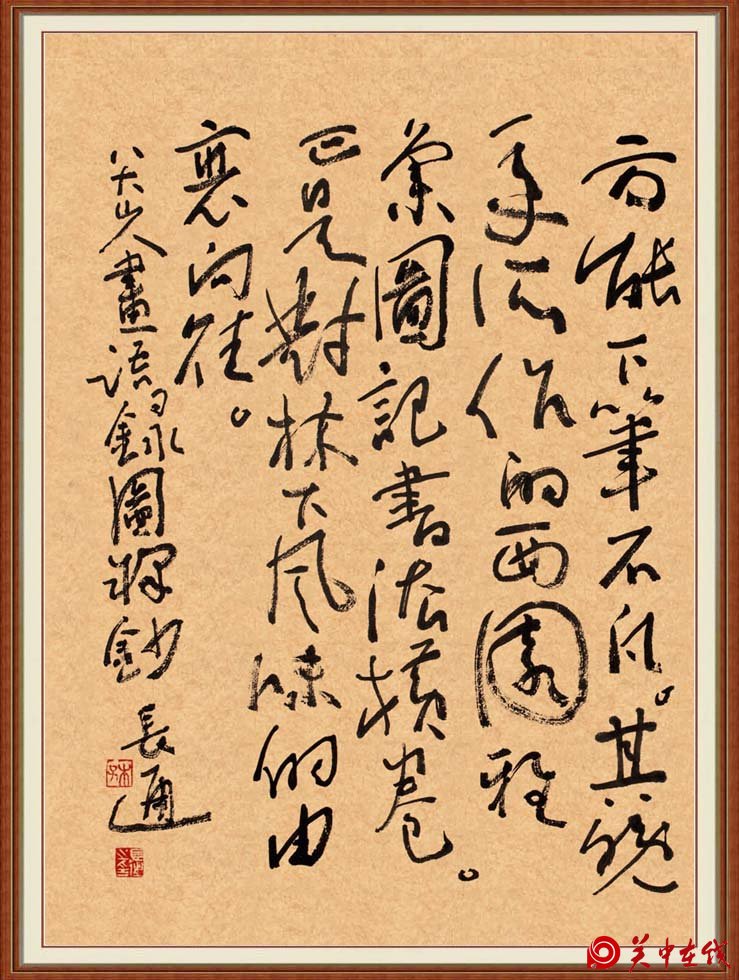 方能下筆不凡。其晚
年所作的西園雅
集圖記書法橫卷。
正是對林下風味的由
衷向往。
八大山人畫語錄圖釋鈔 長通
关中在线